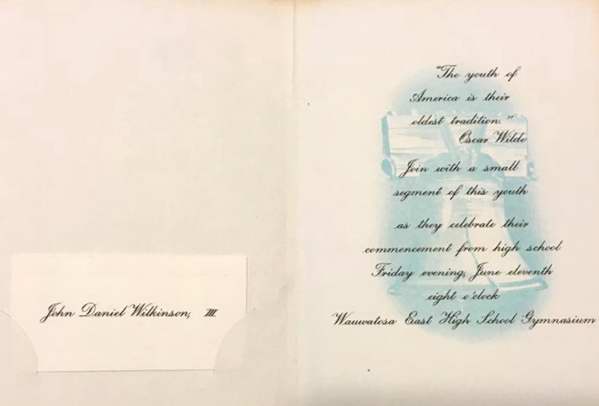 John Daniel Wilkinson, III
"The youth of
America is their
oldest tradition."
Oscar Wilde
Join with a small
segment of this youth
as they celebrate their
commencement from high school
Friday evening, June eleventh
eight o'clock
Wauwatosa East High School Gymnasium